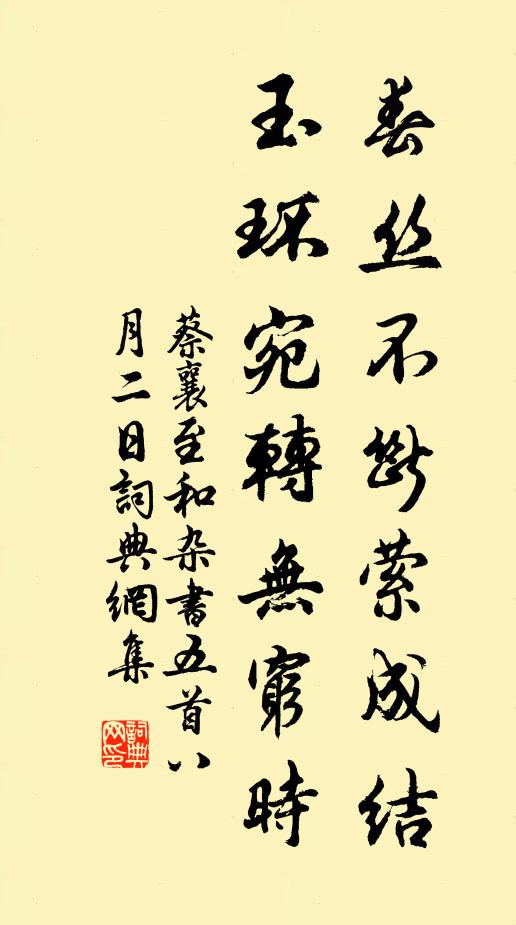 春丝不断萦成结
玉环宛轉無窮時
蔡襄至和杂書五首八
月二日詞典網集
詞典網印